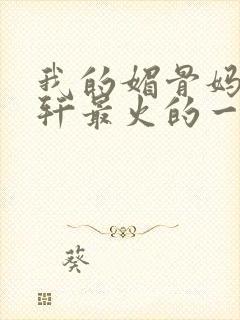 我的媚骨妈
轩最火的一
葵